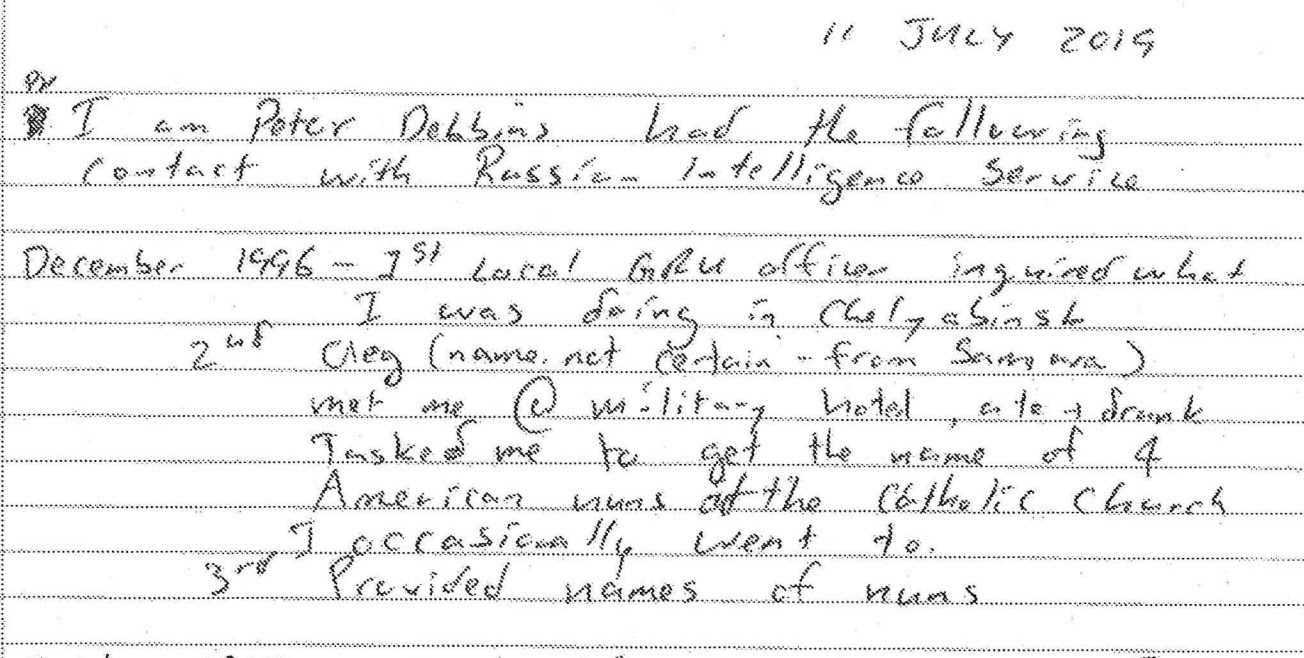 11 JULY 2019
PD
I am Peter Debbins had the following
contact with Russian Intelligence Service
December 1996 - 1st Local GRU officer inquired what
I was doing in Chelyabinsk
2nd Oleg (name not certain - from Samara)
met me @ military hotel, ate + drank
Tasked me to get the name of 4
American nuns at the Catholic Church
I occasionally went to.
3rd Provided names of nuns